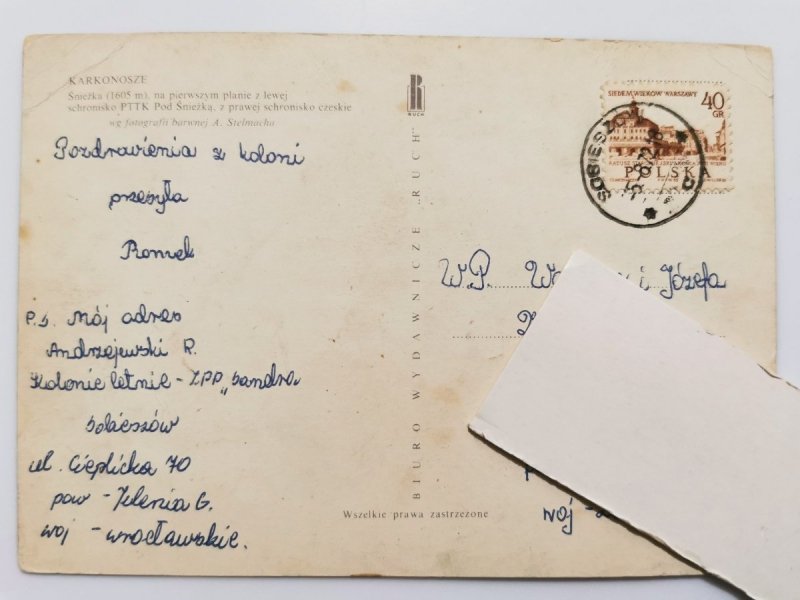 KARKONOSZE
Śnieżka (1605 m), na pierwszym planie z lewej
schronisko PTTK Pod Śnieżką, z prawej schronisko czeskie
wg fotografii barwnej A. Stelmacha
Pozdrowienia z koloni
przesyła
Romek
P.s. Mój adres
Andrzejewski R.
Kolonie letnie - ZPP „Sandra
Sobieszów
ul. Cieplicka 70
pow - Jelenia G.
woj - wrocławskie.
RUCH
BIURO WYDAWNICZE „RUCH"
Wszelkie prawa zastrzeżone
SIEDEM WIEKÓW WARSZAWY
40
GR
POLSKA
SOBIESZÓ
W.P. Józefa
woj -